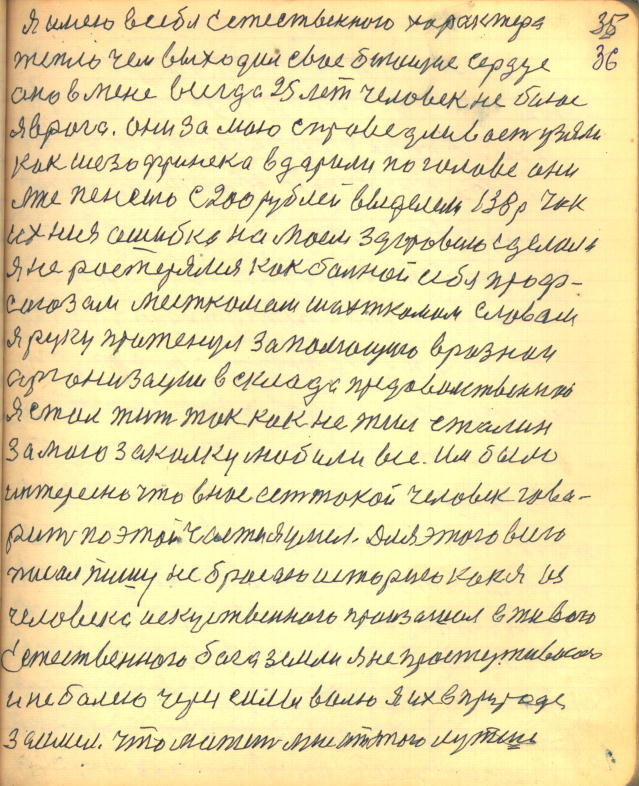 35
Я имею в себя Естественного характера
36
тепло чем выходил свое бтющие сердце
оно в мене всегда 25 лет человек не бою
я врага. они за мою справедливост узяли
как шезофринека вдарили по голове они
мне пенсию с 200 рублей выделели 138р так
ихния ошибка на моем здоровию сделала
я не ростерялся как болной себя проф-
союзам месткомам шахткомам словам
я руку протенул за помощию в разнаи
организации в склада продовольственныи
Я стал тит так как не тил сталин
За мою закалку любили все. Им было
интересно что в нас ест такой человек гова-
рит по этой части я умел. Для этого всего
писал пишу не бросаю историю как я из
человека искуственного произашол в тивого
Естественного бога земли я не простутиваюс
и не болею через силли волю я их в природе
заимел. что может мне от этого лутше